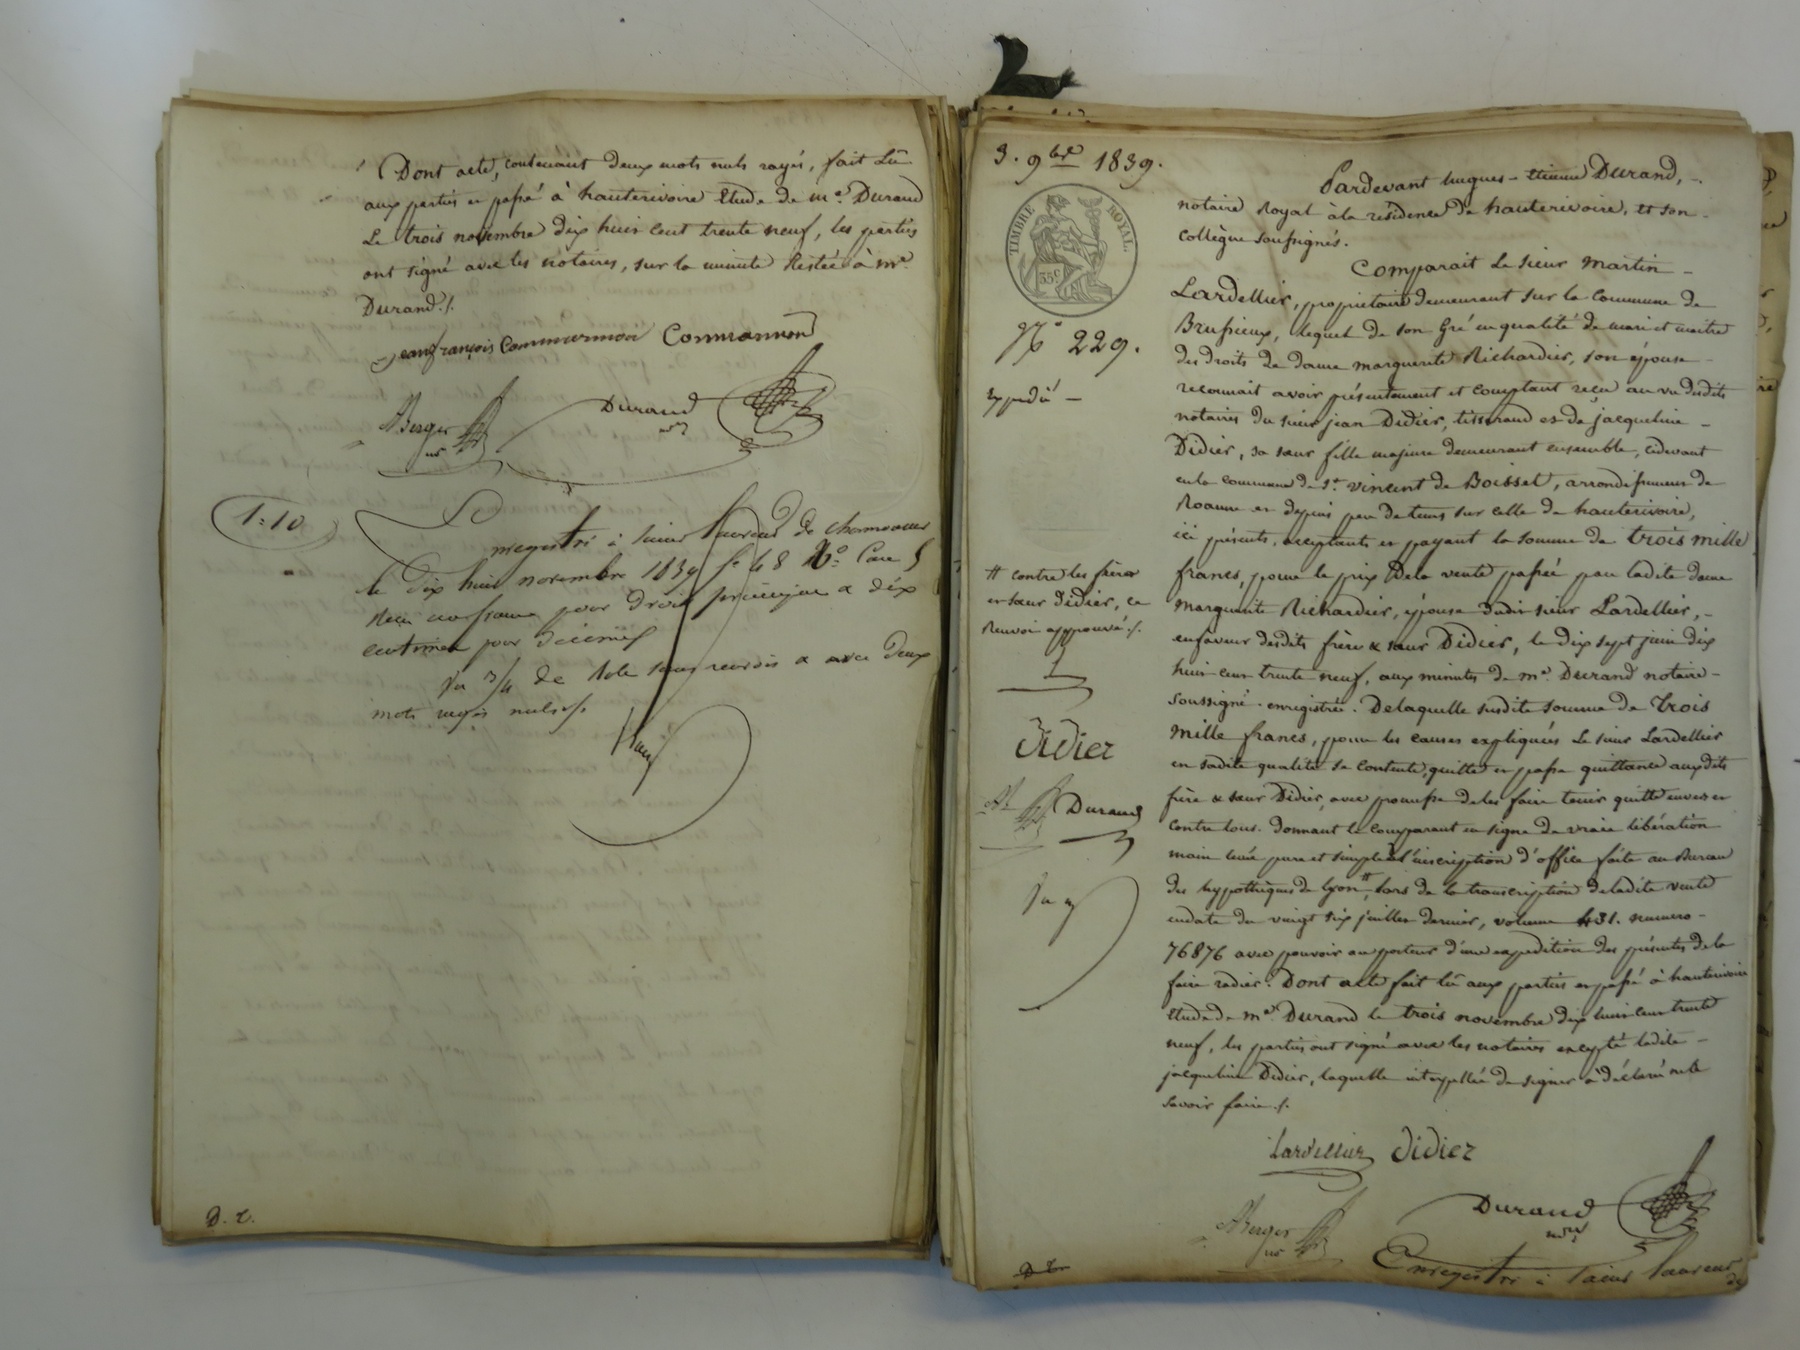 Dont acte, contenant deux mots nuls rayés, fait Lû
aux parties et passé à hauterivoire Etude de me. Durand
Le trois novembre dix huit cent trente neuf, les parties
ont signé avec les notaires, sur la minute Restée à me.
Durand ./.
Jean françois Commarmon Commarmon
Berger Durand
nre
1=10
Enregistré à Saint Laurent de chamousset
le dix huit novembre 1839 fo 48 Ro Case 5
Reçu un franc pour droit principal & dix
centimes pour décime
mots rayés nuls ./.
D. L.
3. 9bre 1839.
TIMBRE ROYAL.
35c
No 229.
Expédié —
Pardevant hugues-etienne Durand,
notaire Royal à la résidence de hauterivoire, et son
collègue soussignés.
Comparait le sieur martin
Lardellier, propriétaire demeurant sur la Commune de
Brussieux, lequel de son Gré en qualité de mari et maitre
des droits de dame marguerite Richardier, son épouse
reconnait avoir présentement et comptant reçu au vu desdits
notaires du sieur jean Didier, tisserand et de jacqueline
Didier, sa sœur fille majeure demeurant ensemble, cidevant
en la commune de St. vincent de Boisset, arrondissement de
Roanne et depuis peu de tems sur celle de hauterivoire,
ici présents, acceptants et payant la somme de trois mille
francs, pour le prix de la vente passée par ladite dame
marguerite Richardier, épouse dudit sieur Lardellier,
en faveur desdits frère & sœur Didier, le dix sept juin dix
huit cent trente neuf, aux minutes de me. Durand notaire
soussigné enregistrée. De laquelle susdite somme de trois
mille francs, pour les causes expliquées le sieur Lardellier
en sadite qualité se contente, quitte et passe quittance auxdits
frère & sœur Didier, avec promesse de les faire tenir quitte envers et
contre tous. donnant le comparant en signe de vraie libération
main levée pure et simple à l'inscription d'office faite au Bureau
des hypothèques de Lyon #, lors de la transcription de ladite vente
en date du vingt six juillet dernier, volume 431. numero
76876 avec pouvoir au porteur d'une expedition des présentes de la
faire radier. Dont acte fait lû aux parties et passé à hauterivoire
Etude de me. Durand le trois novembre dix huit cent trente
neuf, les parties ont signé avec les notaires excepté ladite
jacqueline Didier, laquelle interpellée de signer a déclaré ne le
savoir faire ./.
# contre les frère
et sœur Didier, ce
Renvoi approuvé ./.
L
Didier
Durand
Lardellier Didier
Berger Durand
nre
Enregistré à Saint Laurent de
D. L.